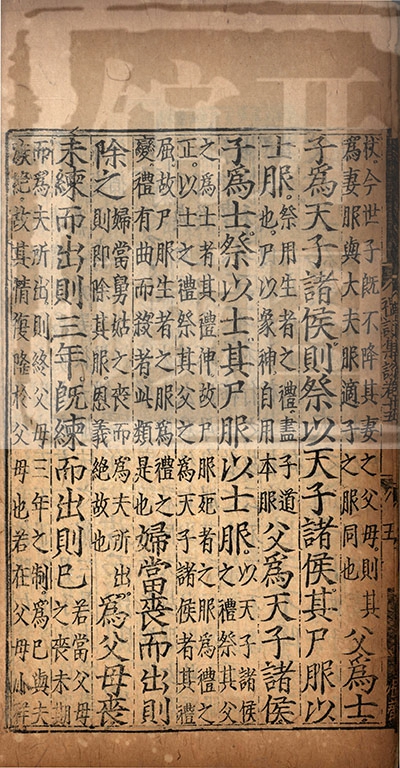 杖今世子既不降其妻之父母則其
為妻服與大夫服適子之服同也
父為士
子為天子諸侯則祭以天子諸侯其尸服以
士服
祭用生者之禮盡子道
也尸以象神自用本服
父為天子諸侯
子為士祭以士其尸服以士服
以天子諸侯
之禮祭其父
之為士者其禮伸故尸服死者之服為禮之
正以士之禮祭其父之為天子諸侯者其禮
屈故尸服生者之服為禮之
變禮有曲而殺者此類是也
婦當喪而出則
除之
婦當舅姑之喪而為夫所出
則即除其服恩義絕故也
為父母喪
未練而出則三年既練而出則已
若當父母
之喪未期
而為夫所出則終父母三年之制為已與夫
族絕故其情復隆於父母也若在父母小祥
禮記集說卷十五
五